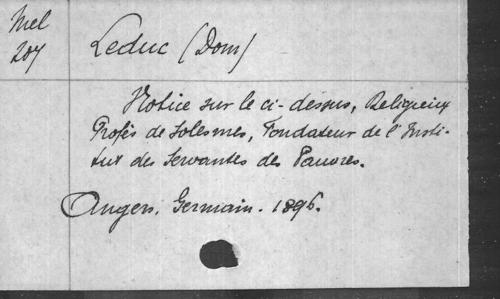 Mel
207
Leduc (Dom)
Notice sur le ci-dessus, Religieux
Profès de Solesmes, Fondateur de l'Insti-
tut des Servantes des Pauvres.
Angers, Germain. 1896.